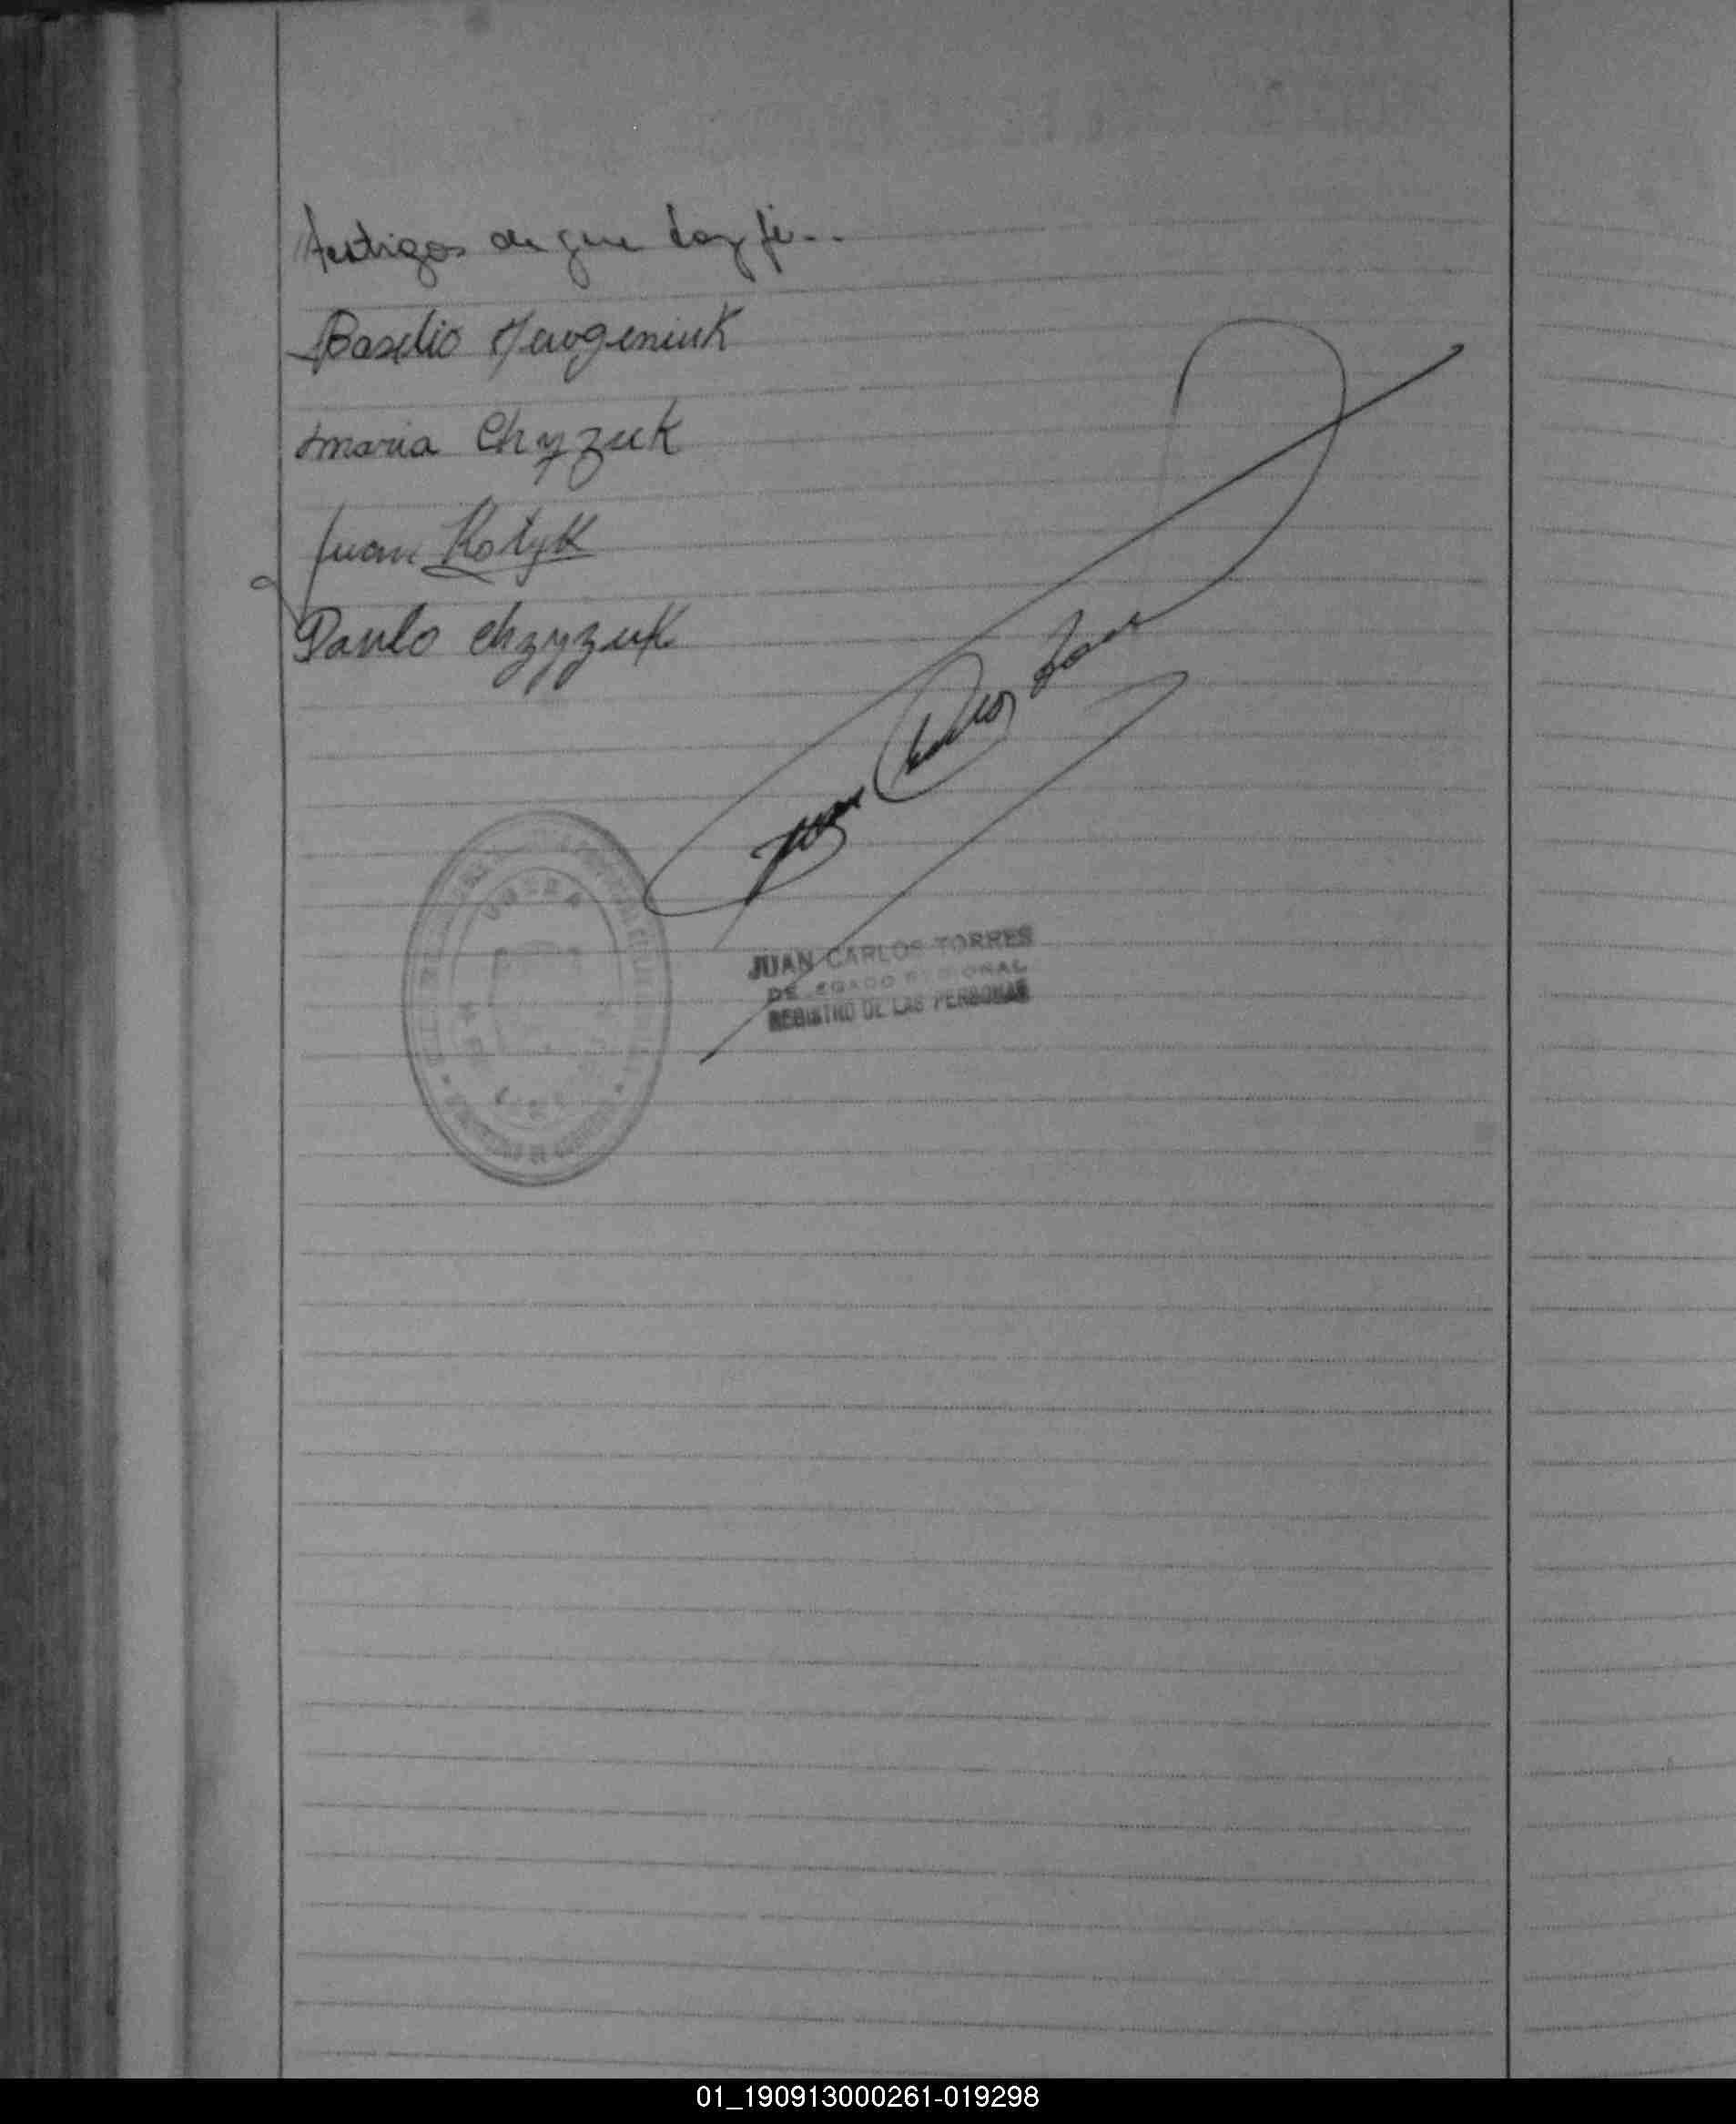 testigos de que doy fé..
Basilio Jewgeniuk
Maria Chyzuk
Juan Kotyk
Pavlo Chzyzuk
Juan Carlos Torres
JUAN CARLOS TORRES
DELEGADO REGIONAL
REGISTRO DE LAS PERSONAS
OBERA
01_190913000261-019298